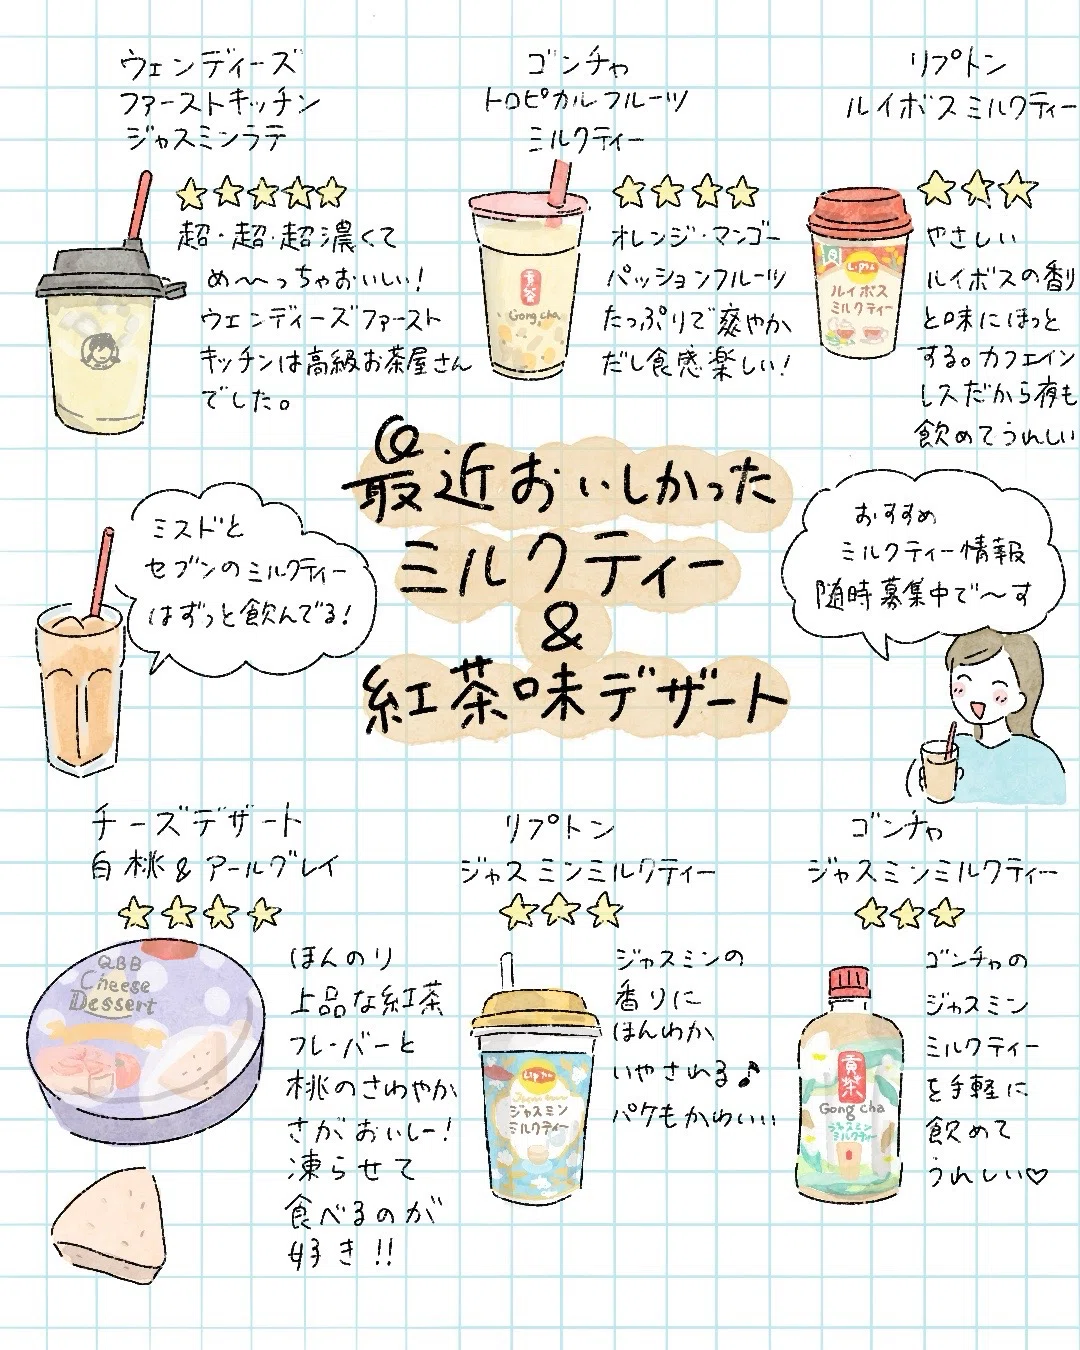 ウェンディーズ
ファーストキッチン
ジャスミンラテ
超・超・超濃くて
め〜〜っちゃおいしい!
ウェンディーズファースト
キッチンは高級お茶屋さん
でした。
ゴンチャ
トロピカルフルーツ
ミルクティー
貢茶
Gong cha
オレンジ・マンゴー
パッションフルーツ
たっぷりで爽やか
だし食感楽しい!
リプトン
ルイボスミルクティー
Lipton
ルイボス
ミルクティー
やさしい
ルイボスの香り
と味にほっと
する。カフェイン
レスだから夜も
飲めてうれしい
最近おいしかった
ミルクティー
&
紅茶味デザート
ミスドと
セブンのミルクティー
はずっと飲んでる!
おすすめ
ミルクティー情報
随時募集中で〜す
チーズデザート
白桃&アールグレイ
QBB
Cheese
Dessert
ほんのり
上品な紅茶
フレーバーと
桃のさわやか
さがおいしー!
凍らせて
食べるのが
好き!!
リプトン
ジャスミンミルクティー
Lipton
ジャスミン
ミルクティー
ジャスミンの
香りに
ほんわか
いやされる♪
パケもかわいい
ゴンチャ
ジャスミンミルクティー
貢茶
Gong cha
ジャスミン
ミルクティー
ゴンチャの
ジャスミン
ミルクティー
を手軽に
飲めて
うれしい♡